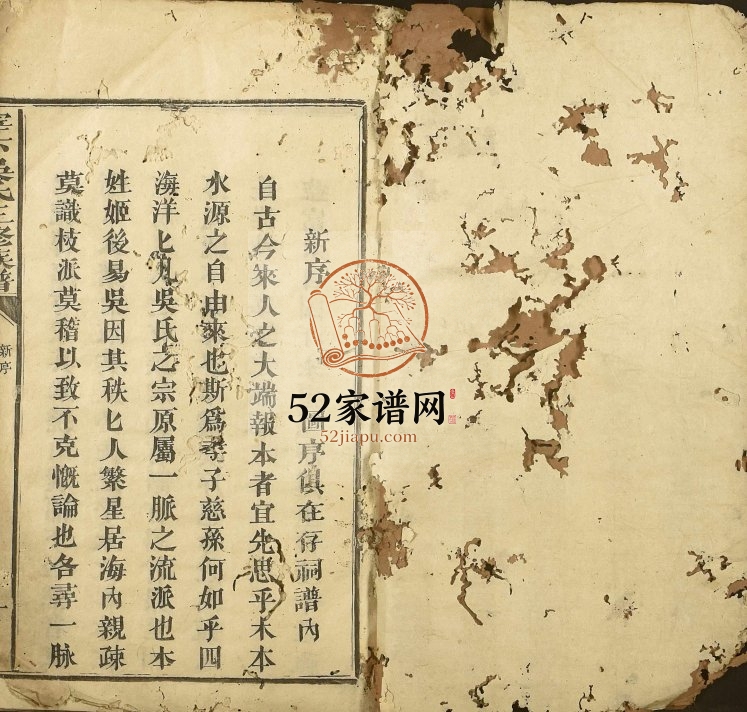 新序 圖序俱在存祠譜內
自古今來人之大端報本者宜先思乎木本
水源之自由來也斯爲孝子慈孫何如乎四
海洋匕凡吳氏之宗原屬一脈之流派也本
姓姬後易吳因其秩匕人繁星居海內親疎
莫識枝派莫稽以致不克慨論也各尋一脉
吳氏三修族譜
新序
一
52家谱网
52jiapu.com